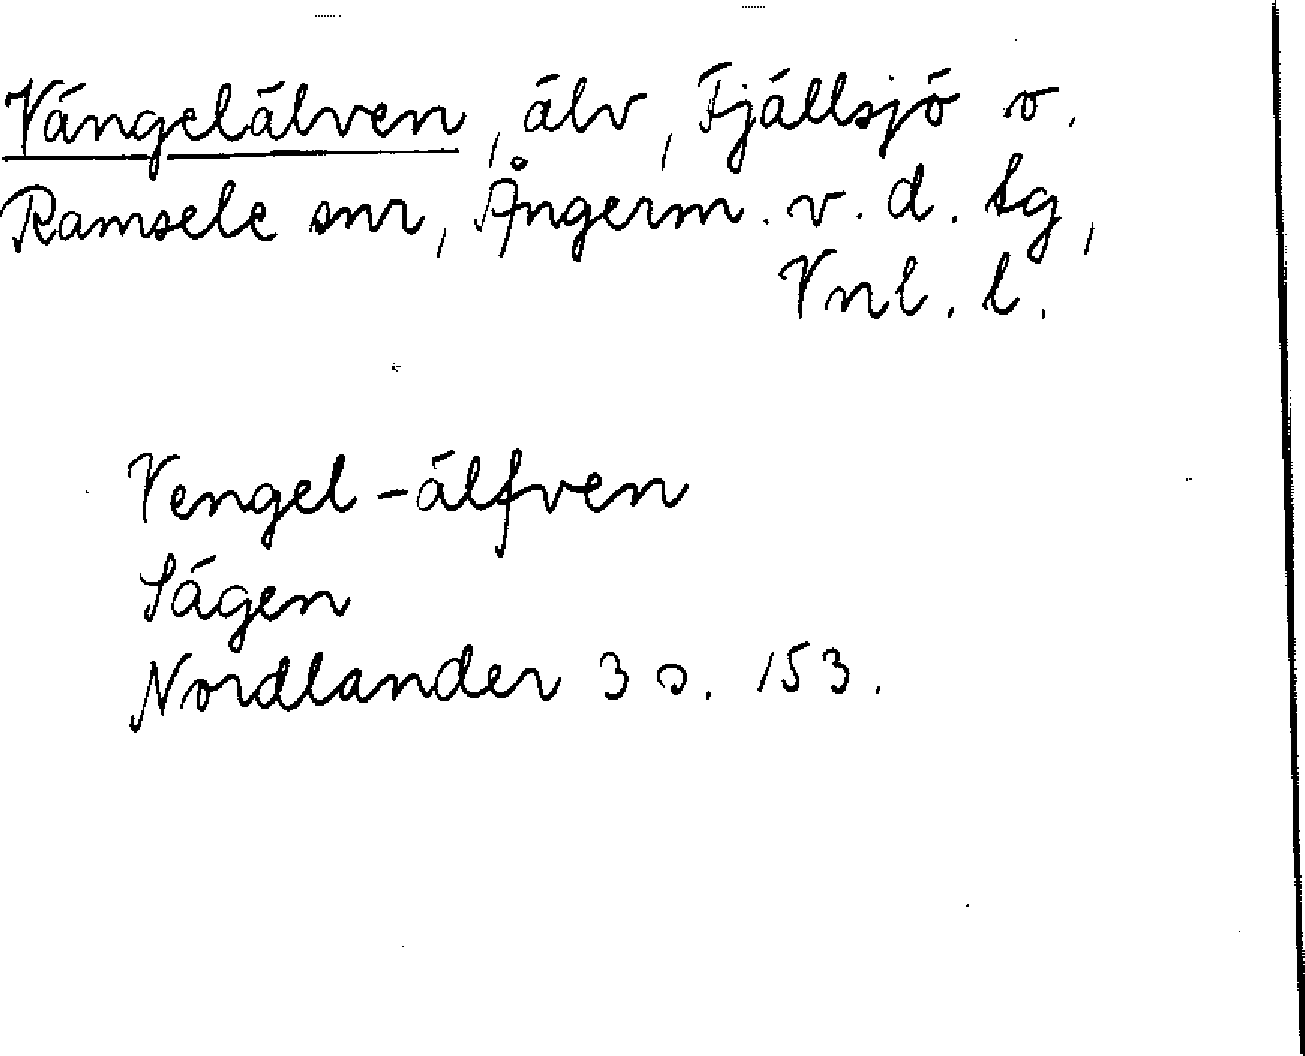 Vängelälven, älv, Fjällsjö o.
Ramsele snr, Ångerm. v. d. tg,
Vnl. l.
Vengel-älfven
Sägen
Nordlander 3 s. 153.